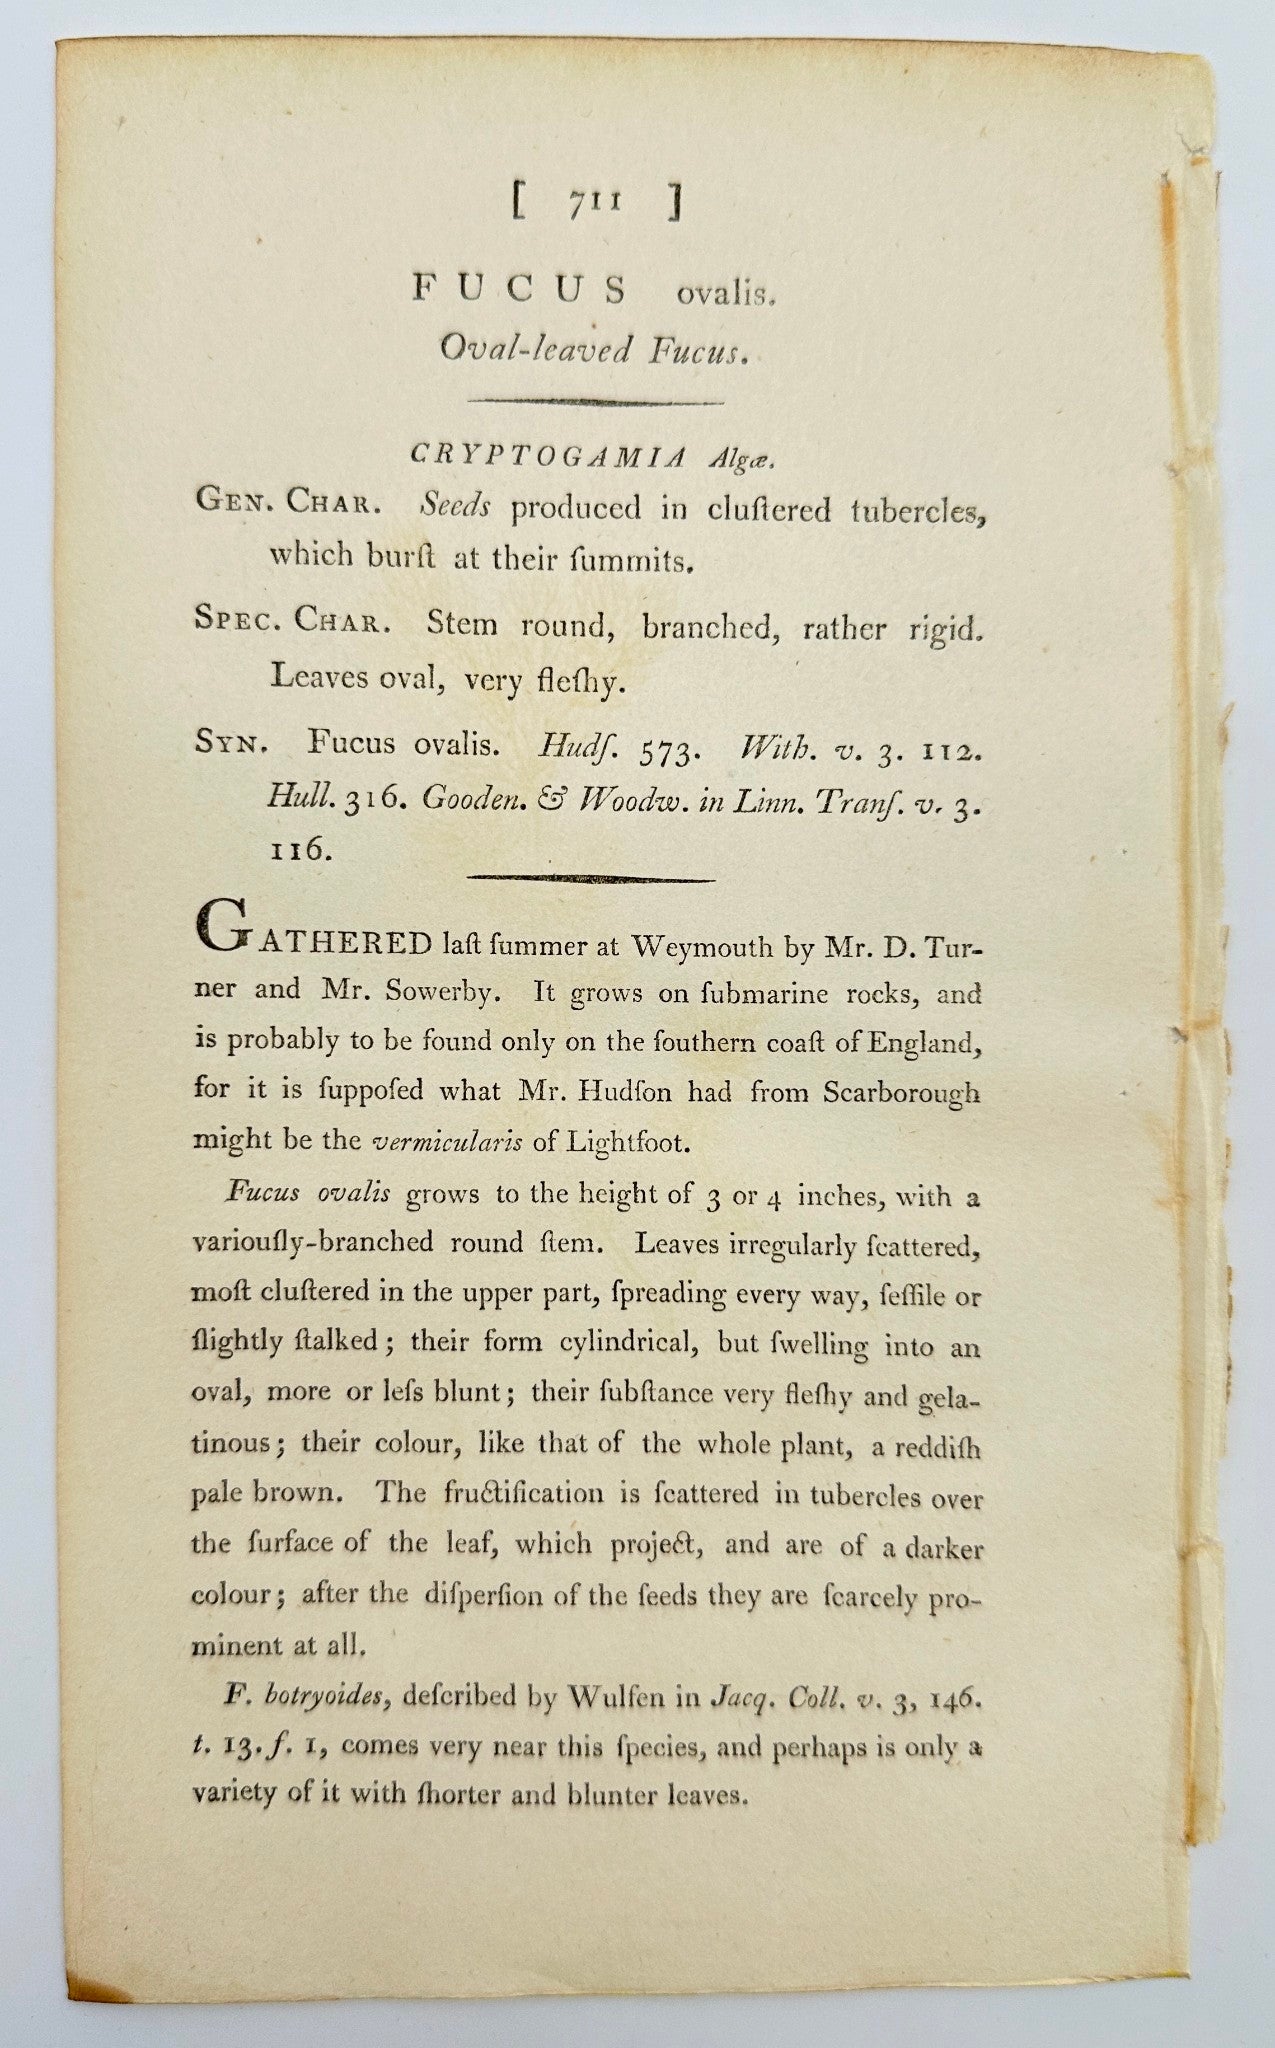 [ 711 ]
FUCUS ovalis.
Oval-leaved Fucus.
CRYPTOGAMIA Algæ.
GEN. CHAR. Seeds produced in cluſtered tubercles,
which burſt at their ſummits.
SPEC. CHAR. Stem round, branched, rather rigid.
Leaves oval, very fleſhy.
SYN. Fucus ovalis. Hudſ. 573. With. v. 3. 112.
Hull. 316. Gooden. & Woodw. in Linn. Tranſ. v. 3.
116.
GATHERED laſt ſummer at Weymouth by Mr. D. Tur-
ner and Mr. Sowerby. It grows on ſubmarine rocks, and
is probably to be found only on the ſouthern coaſt of England,
for it is ſuppoſed what Mr. Hudſon had from Scarborough
might be the vermicularis of Lightfoot.
Fucus ovalis grows to the height of 3 or 4 inches, with a
variouſly-branched round ſtem. Leaves irregularly ſcattered,
moſt cluſtered in the upper part, ſpreading every way, ſeſſile or
ſlightly ſtalked; their form cylindrical, but ſwelling into an
oval, more or leſs blunt; their ſubſtance very fleſhy and gela-
tinous; their colour, like that of the whole plant, a reddiſh
pale brown. The fructification is ſcattered in tubercles over
the ſurface of the leaf, which project, and are of a darker
colour; after the diſperſion of the ſeeds they are ſcarcely pro-
minent at all.
F. botryoides, deſcribed by Wulfen in Jacq. Coll. v. 3, 146.
t. 13. f. 1, comes very near this ſpecies, and perhaps is only a
variety of it with ſhorter and blunter leaves.